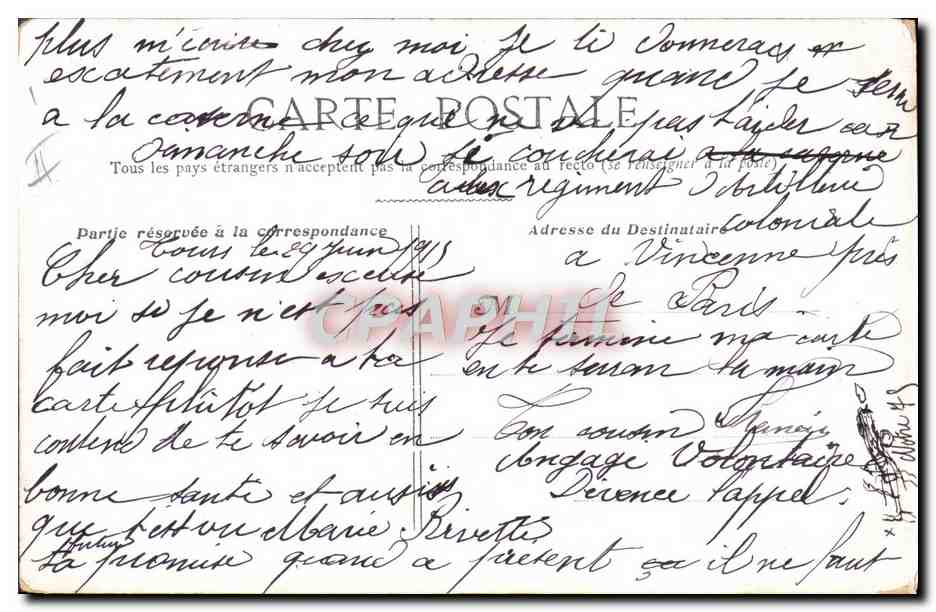 plus m'écrire chez moi je te donnerais
exatement mon adresse quand je serai
CARTE POSTALE
a la caserne ce que ne va pas tarder car
Dimanche soir je coucherai a la caserne
Tous les pays étrangers n'acceptent pas la correspondance au recto (se renseigner à la poste)
regiment d'Artillerie
coloniale
Partie réservée à la correspondance
Adresse du Destinataire
a Vincenne près
de Paris.
Tours le 29 Juin 1915
Cher cousin escuse
moi si je n'est pas
fait reponse a ta
carte plutot je suis
contend de te savoir en
bonne santé et aussi
que
Marie
ta future promise quand a présent il ne faut
M
Je termine ma carte
en te serran ta main
Ton cousin
Angage Volontaire
Dévence l'appel.
CPAPHIL